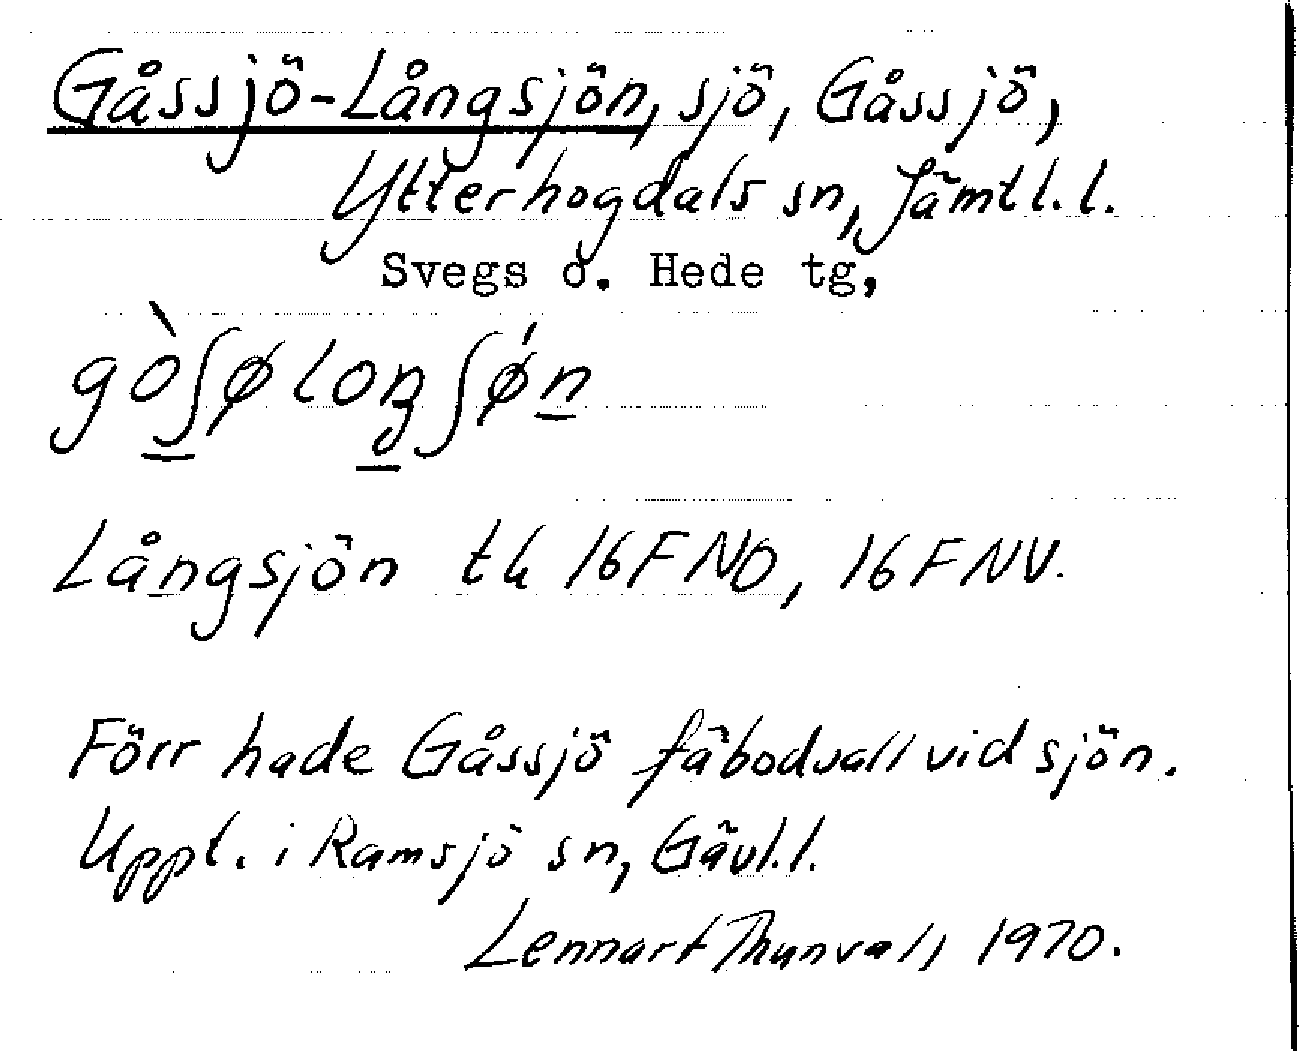 Gåssjö-Långsjön, sjö, Gåssjö,
Ytterhogdals sn, Jämtl. l.
Svegs o. Hede tg,
gòʃø loŋʃǿn
Långsjön tk 16F NO, 16F NV.
Förr hade Gåssjö fäbodvall vid sjön.
Uppt. i Ramsjö sn, Gävl. l.
Lennart Thunvall 1970.